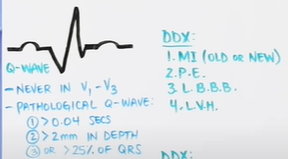 Q-WAVE
- NEVER IN V₁-V₃
- PATHOLOGICAL Q-WAVE:
① > 0.04 SECS
② > 2mm IN DEPTH
③ OR > 25% OF QRS
DDX:
1. MI (OLD OR NEW)
2. P.E.
3. L.B.B.B.
4. L.V.H.
DDX: